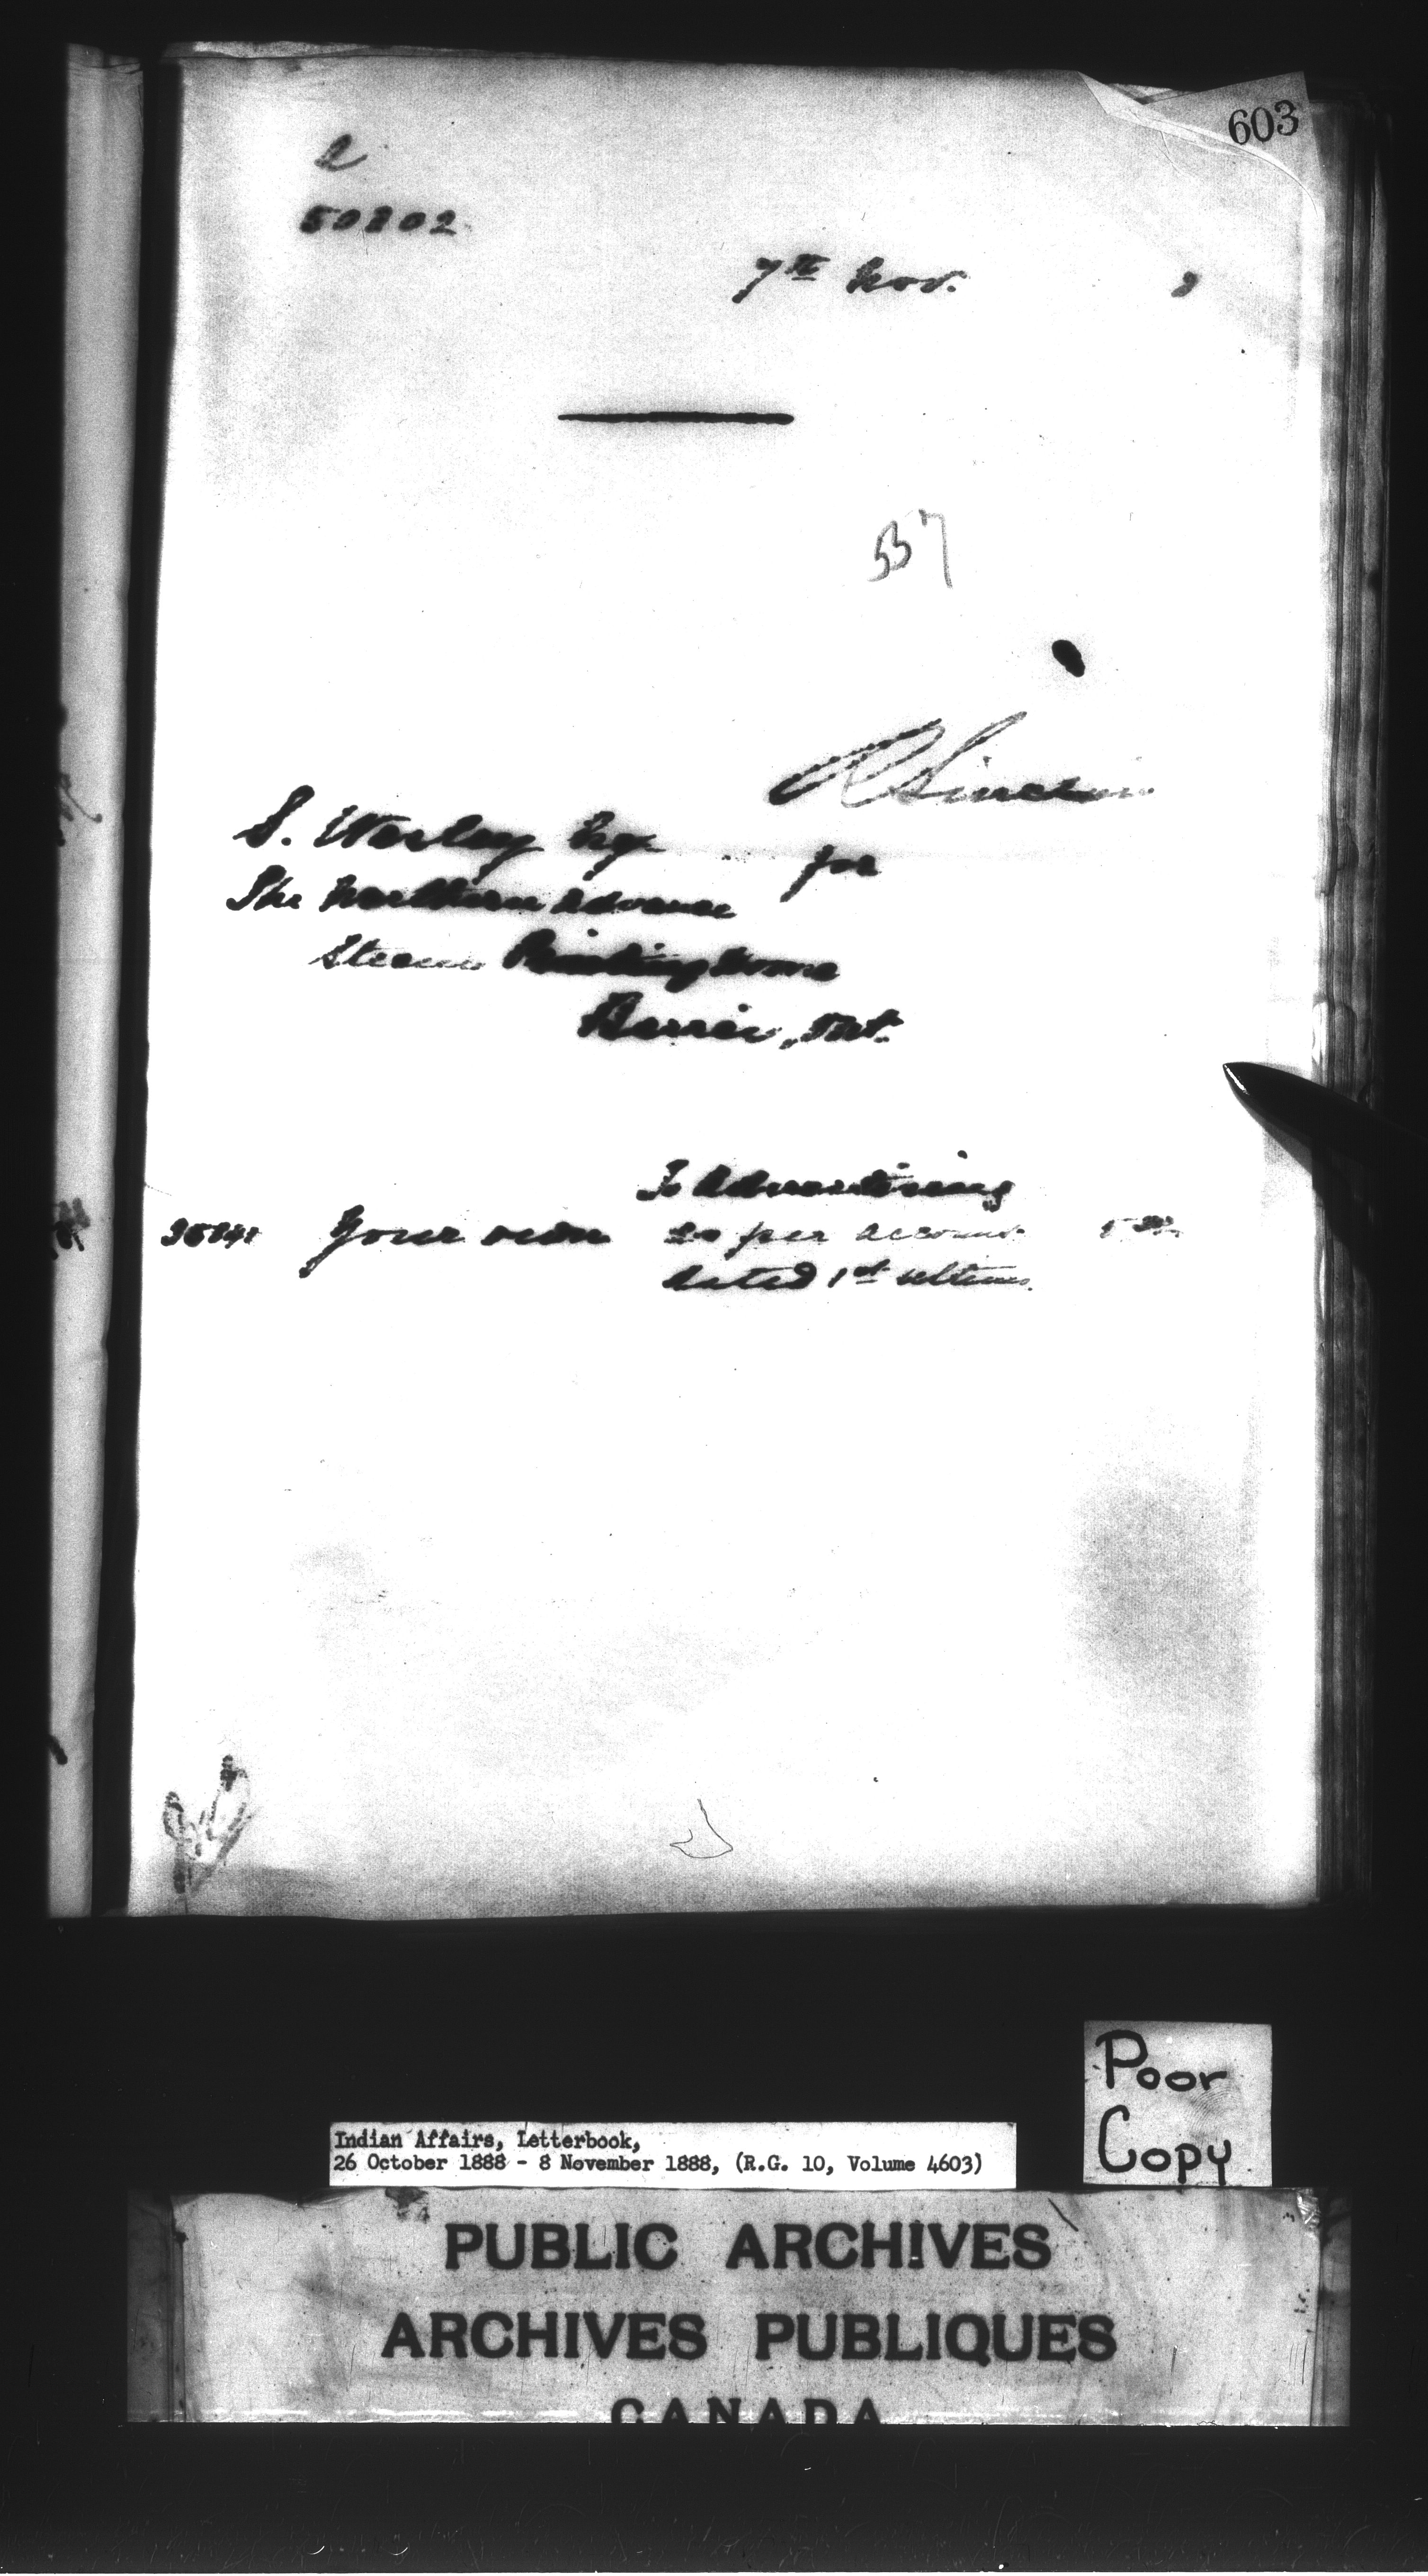 603
L
50802
7th Nov. 8
537
R Sinclair
S. Wesley Esq.
for
The Northern Advance
Steam Printing House
Barrie, Ont.
To Advertising
Your own as per account
dated 1st ultimo.
Poor
Copy
Indian Affairs, Letterbook,
26 October 1888 - 8 November 1888, (R.G. 10, Volume 4603)
PUBLIC ARCHIVES
ARCHIVES PUBLIQUES
CANADA